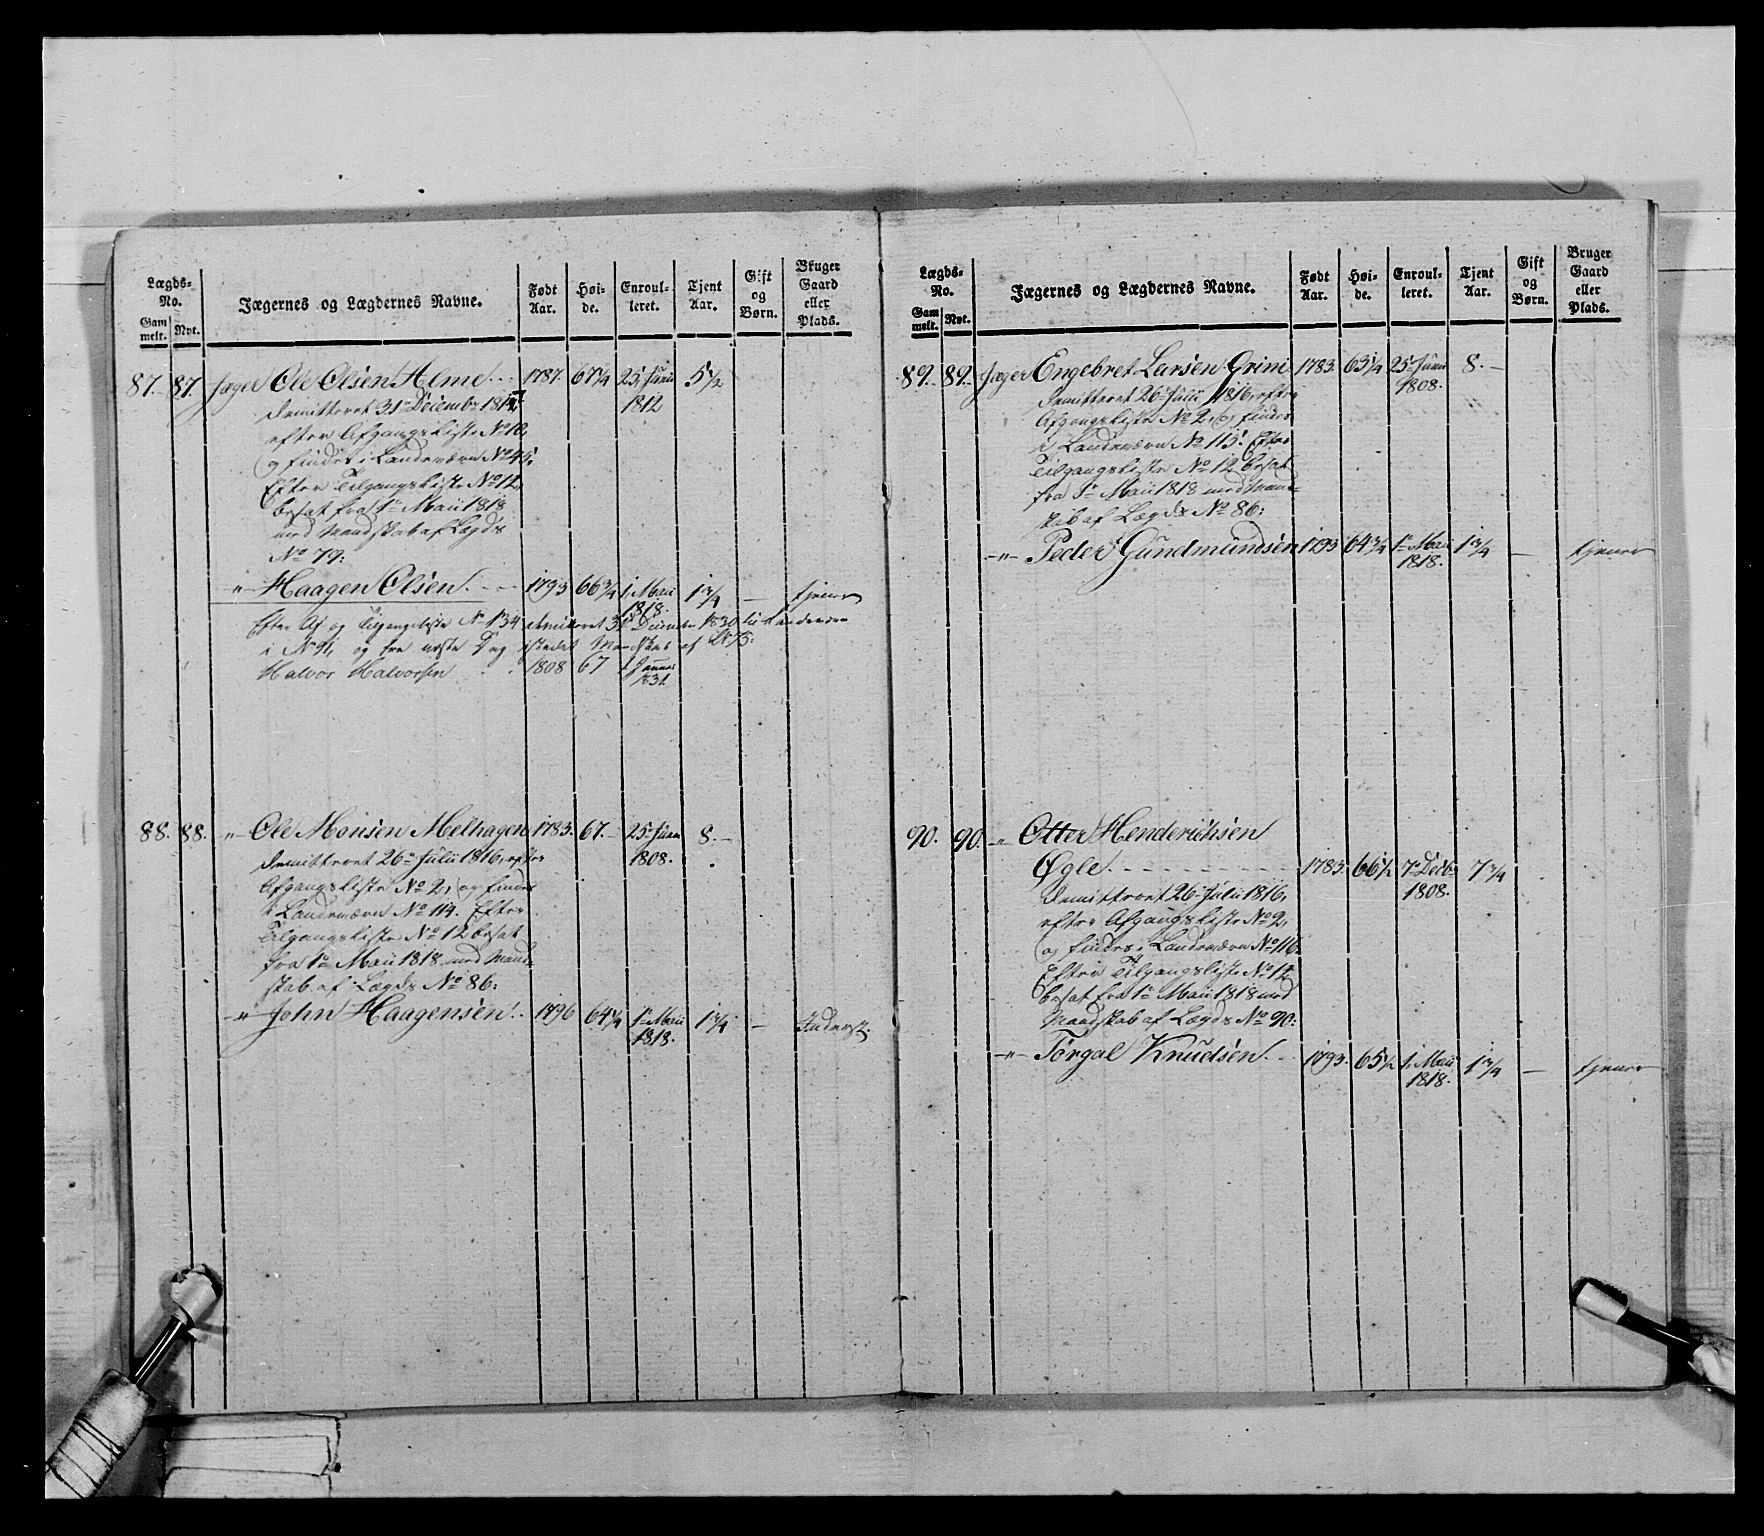 Lægds-No. Jægernes og Lægdernes Navne. Født Aar. Høi-de. Enroul-leret. Tjent Aar. Gift og Børn. Bruger Gaard eller Plads.
Gam melt. Nyt.
87. 87. Jæger Ole Olsen Alme 1787. 67 1/4 25 Junii 1812 5 1/2
demitteret 31te Decembr 1817,
efter Afgangsliste No 10,
og findes i Landeværn No 45.
Efter Tilgangsliste No 12,
besat fra 1te Maii 1818
med Mandskab af Lægds
No 79:
"— Haagen Olsen. 1793 66 3/4 1, Maii 1818. 1 3/4 — tjener
Efter Af og Tilgangsliste No 134 demitteret 31te Decembr 1830 til Landeværn
i No 91, og fra næste Dag istedet Mandskab af
Halvor Halvorsen 1808 67 1 Januar 1831.
88. 88. "— Ole Monsen Melhagen 1783. 67. — 25 Junii 1808. 8. —
demitteret 26te Julii 1816, efter
Afgangsliste No 2, og findes
i Landeværn No 114. Efter
Tilgangsliste No 12 besat
fra 1te Maii 1818 med Mand-
skab af Lægds No 86:
—"— John Haagensen. 1796 64 1/4 1te Maii 1818. 1 3/4 — Inderst.
Lægds-No. Jægernes og Lægdernes Navne. Født Aar. Høi-de. Enroul-leret. Tjent Aar. Gift og Børn. Bruger Gaard eller Plads.
Gam melt. Nyt.
89. 89. Jæger Engebret Larsen Grini 1783. 63 1/4 25 Junii 1808. 8. —
demitteret 26te Julii 1816, efter
Afgangsliste No 2, og findes
i Landeværn No 115. Efter
Tilgangsliste No 12 besat
fra 1te Maii 1818 med Mand-
skab af Lægds No 86:
—"— Peder Gundmundsen 1793 64 3/4 1te Maii 1818. 1 3/4 — tjener
90. 90. —"— Otter Henderichsen
Øgle. 1783. 66 1/2 7de Decb. 1808. 7 3/4
demitteret 26te Julii 1816,
efter Afgangsliste No 2,
og findes i Landeværn No 116.
Efter Tilgangsliste No 12
besat fra 1te Maii 1818 med
Mandskab af Lægds No 90:
—"— Torgal Knudsen. 1793. 65 1/2 1, Maii 1818. 1 3/4 — tjener